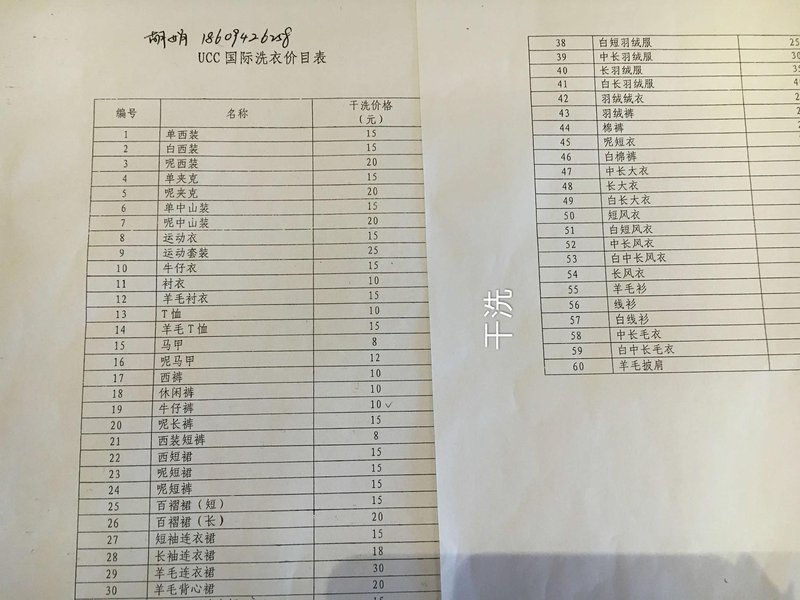 胡娟 18609426258
UCC 国际洗衣价目表
编号 名称 干洗价格
（元）
1 单西装 15
2 白西装 15
3 呢西装 20
4 单夹克 15
5 呢夹克 20
6 单中山装 15
7 呢中山装 20
8 运动衣 15
9 运动套装 25
10 牛仔衣 15
11 衬衣 10
12 羊毛衬衣 15
13 T恤 10
14 羊毛T恤 15
15 马甲 8
16 呢马甲 12
17 西裤 10
18 休闲裤 10
19 牛仔裤 10
20 呢长裤 15
21 西装短裤 8
22 西短裙 15
23 呢短裙 15
24 呢短裤 15
25 百褶裙（短） 15
26 百褶裙（长） 20
27 短袖连衣裙 15
28 长袖连衣裙 18
29 羊毛连衣裙 30
30 羊毛背心裙 20
38 白短羽绒服 25
39 中长羽绒服
40 长羽绒服
41 白长羽绒服
42 羽绒绒衣
43 羽绒裤
44 棉裤
45 呢短衣
46 白棉裤
47 中长大衣
48 长大衣
49 白长大衣
50 短风衣
51 白短风衣
52 中长风衣
53 白中长风衣
54 长风衣
55 羊毛衫
56 线衫
57 白线衫
58 中长毛衣
59 白中长毛衣
60 羊毛披肩
干洗